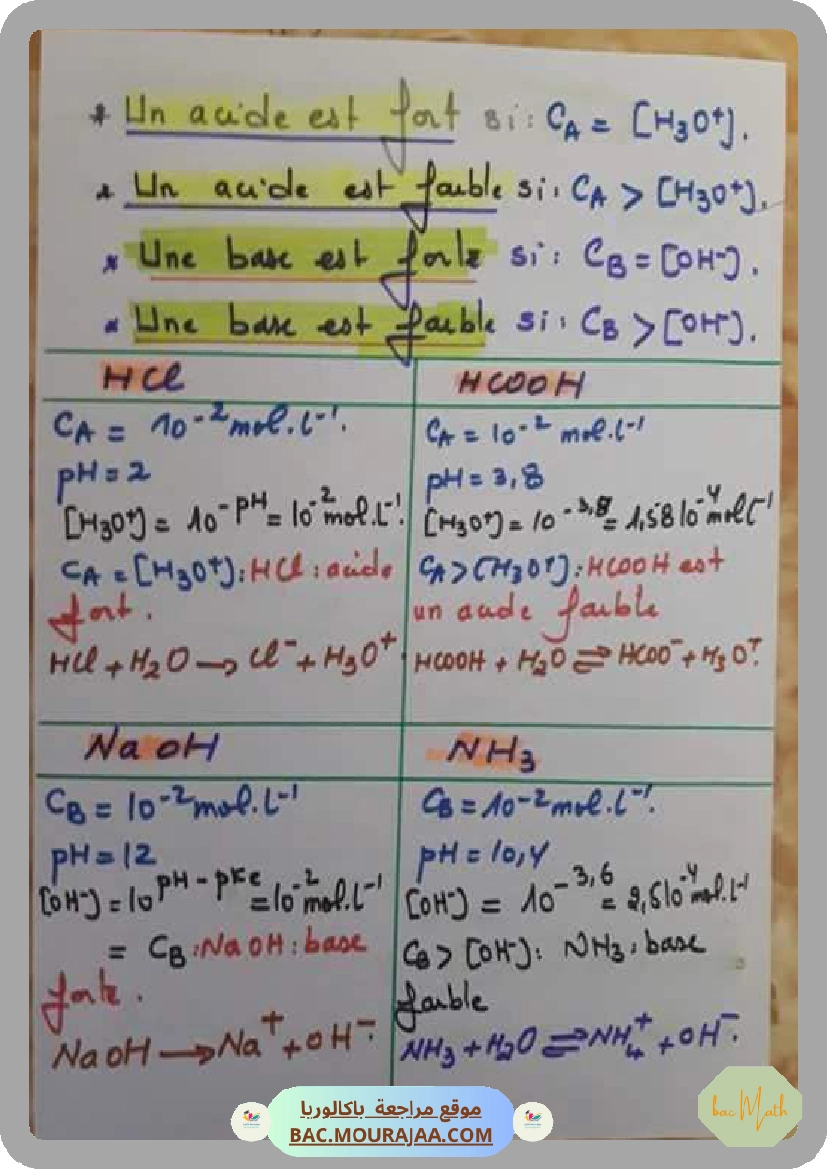 * Un acide est fort si: CA = [H3O+].
* Un acide est faible si: CA > [H3O+].
* Une base est forte si: CB = [OH-].
* Une base est faible si: CB > [OH-].
HCl
CA = 10-2 mol.L-1.
pH = 2
[H3O+] = 10-pH = 10-2 mol.L-1.
CA = [H3O+]: HCl: acide
fort.
HCl + H2O → Cl- + H3O+.
HCOOH
CA = 10-2 mol.L-1
pH = 3,8
[H3O+] = 10-3,8 = 1,58 10-4 mol L-1
CA > [H3O+]: HCOOH est
un acide faible
HCOOH + H2O ⇌ HCOO- + H3O+.
NaOH
CB = 10-2 mol.L-1
pH = 12
[OH-] = 10pH - pKe = 10-2 mol.L-1
= CB: NaOH: base
forte.
NaOH → Na+ + OH-.
NH3
CB = 10-2 mol.L-1.
pH = 10,4
[OH-] = 10-3,6 = 2,5 10-4 mol.L-1
CB > [OH-]: NH3: base
faible
NH3 + H2O ⇌ NH4+ + OH-.
موقع مراجعة باكالوريا
BAC.MOURAJAA.COM
bac Math